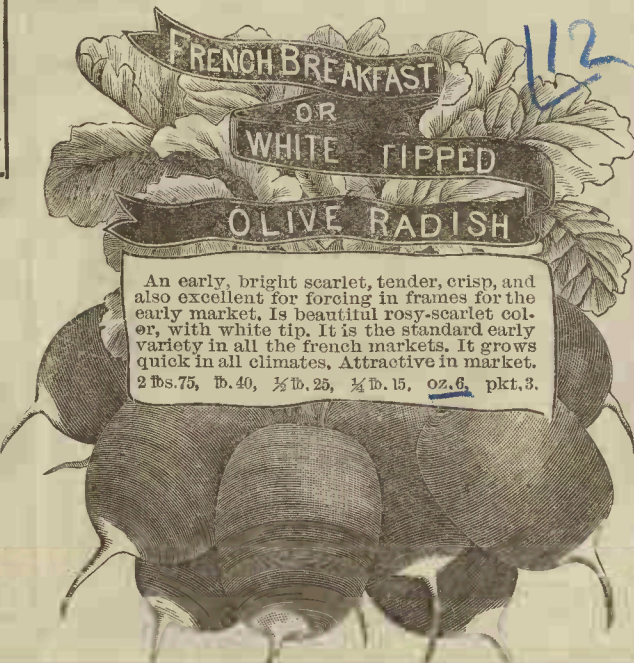 112
FRENCH BREAKFAST
OR
WHITE TIPPED
OLIVE RADISH
An early, bright scarlet, tender, crisp, and
also excellent for forcing in frames for the
early market. Is beautiful rosy-scarlet col-
or, with white tip. It is the standard early
variety in all the french markets. It grows
quick in all climates. Attractive in market.
2 lbs. 75, lb. 40, ½ lb. 25, ¼ lb. 15, oz. 6, pkt. 3.